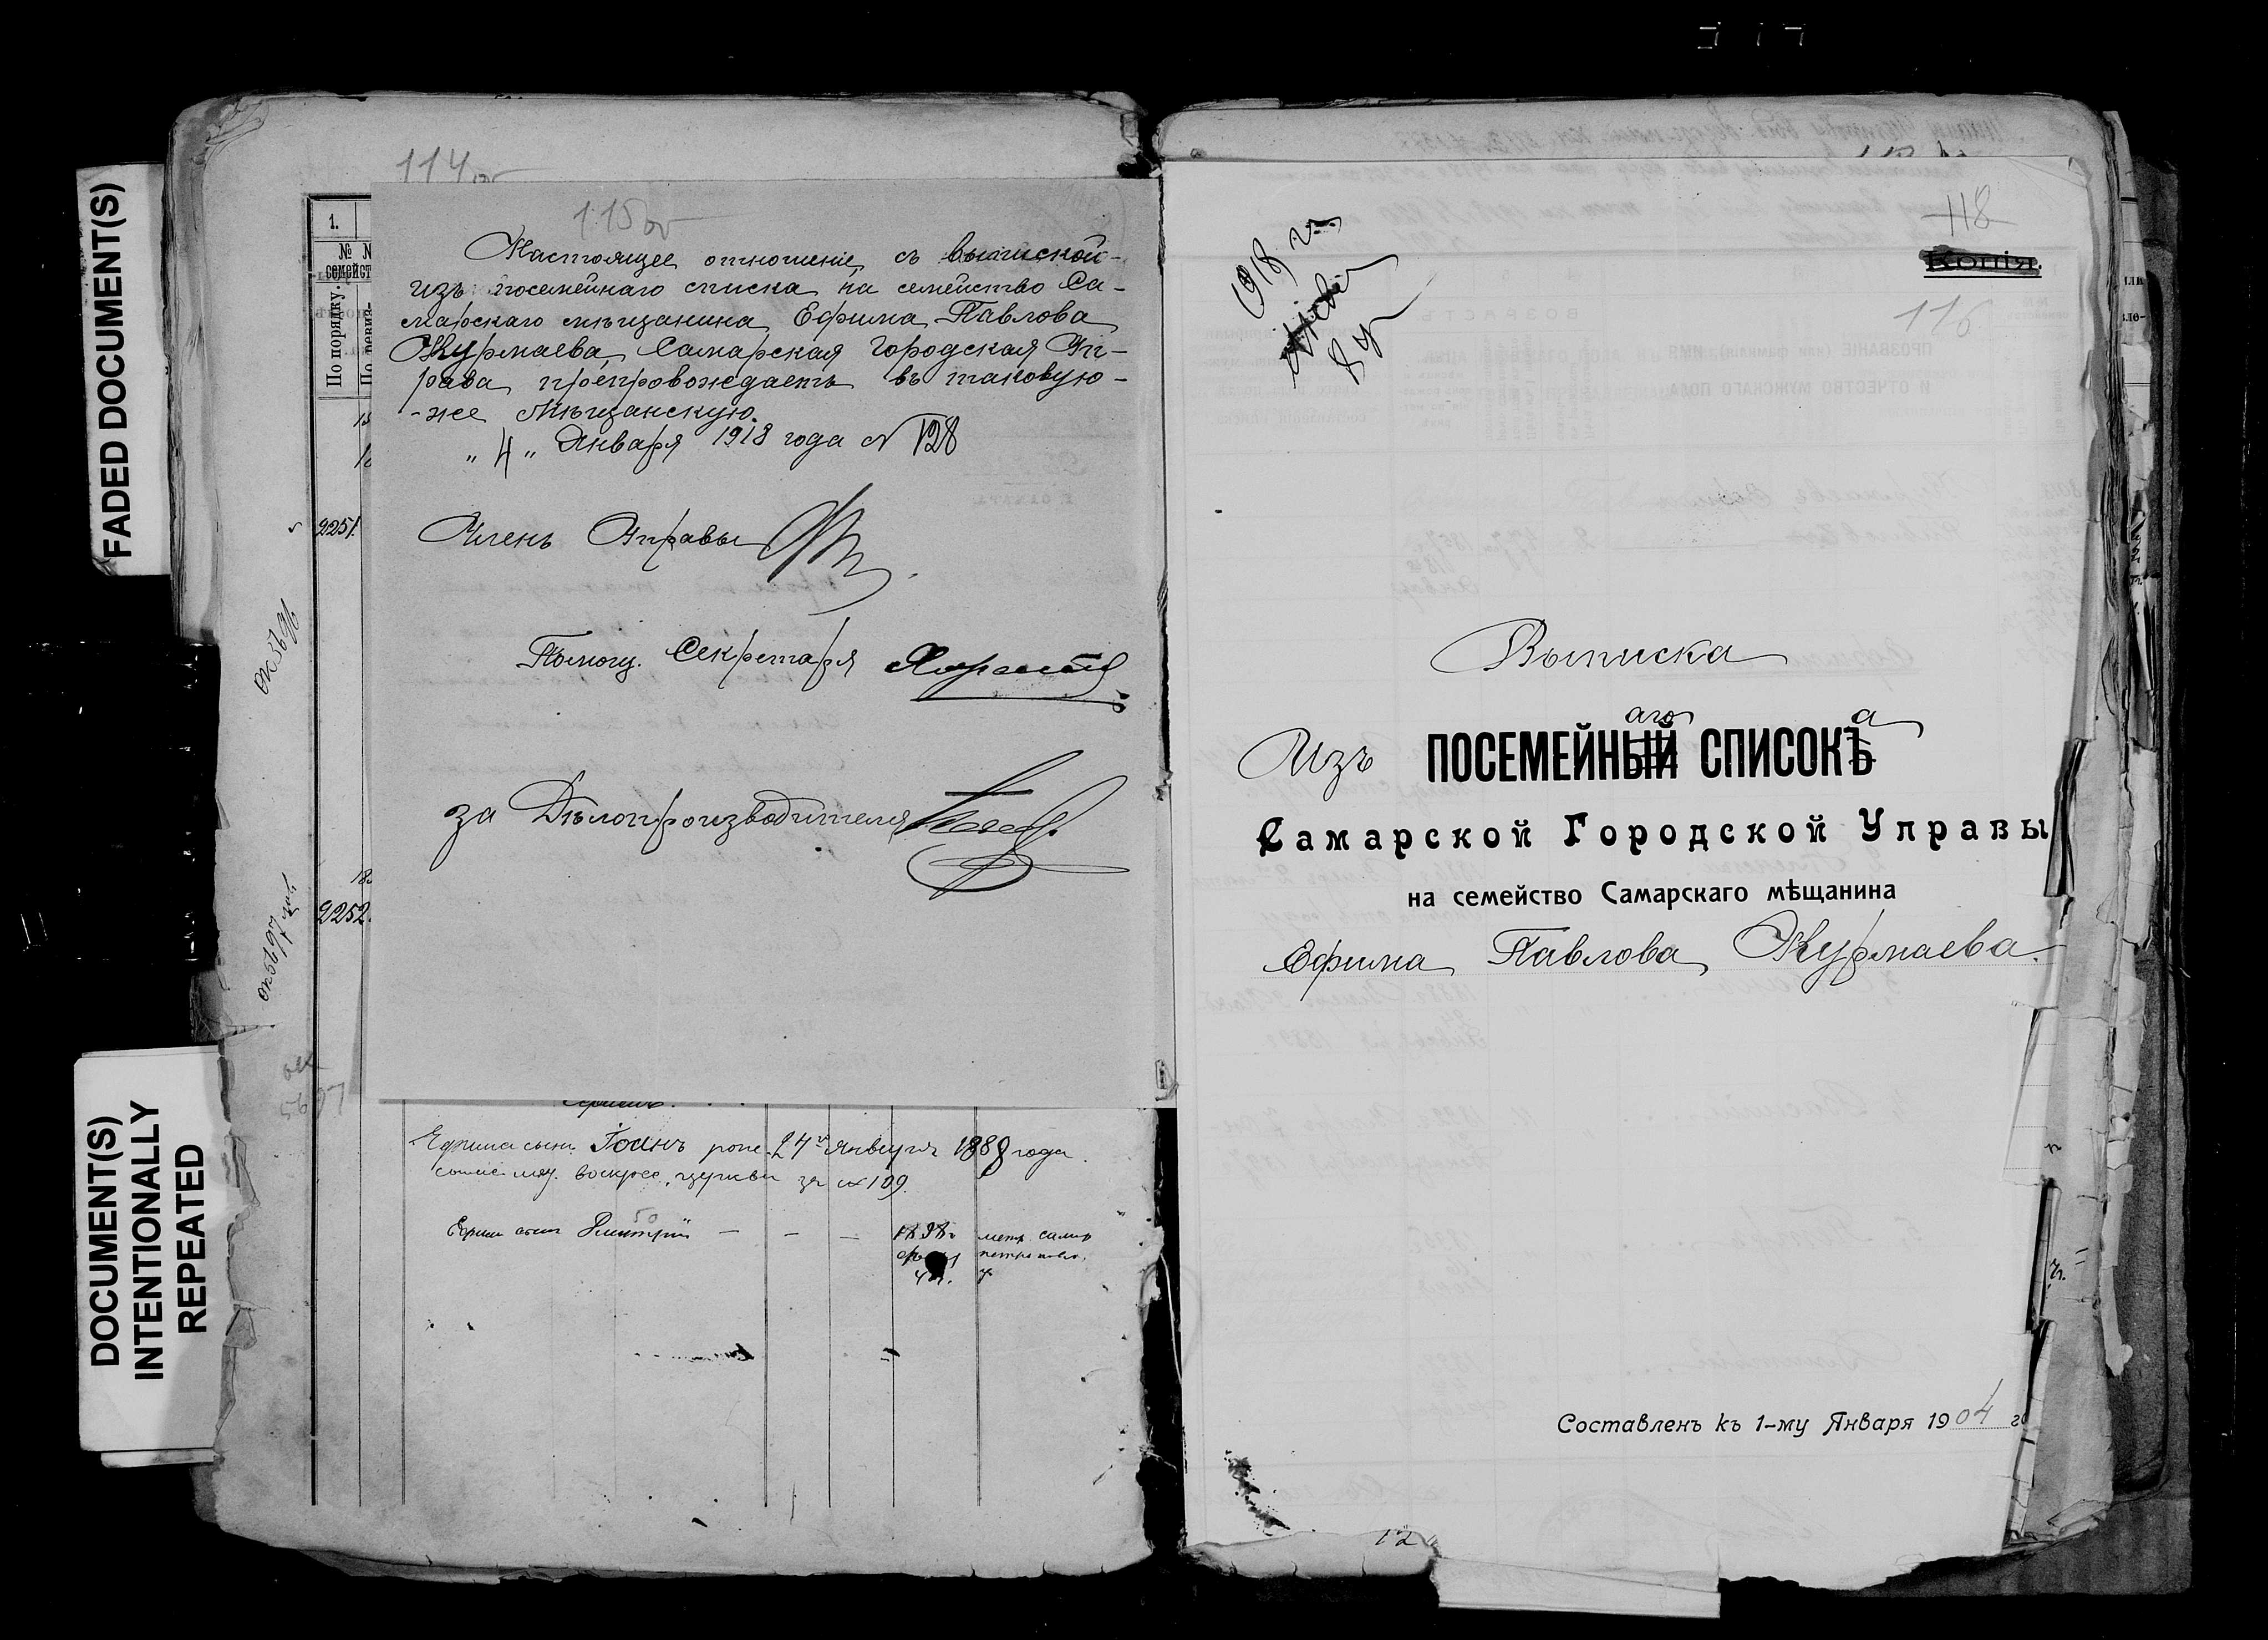 FADED DOCUMENT(S)
DOCUMENT(S)
INTENTIONALLY
REPEATED
114 об
1.
№ №
семейст
По порядку.
По ревиз-
2251.
ок 5696
2252.
ок 5697
ок
5697
115 об
Настоящее отношеніе, съ выпиской
изъ посемейнаго списка на семейство Са-
марскаго мѣщанина Ефима Павлова
Журмаева, Самарская Городская Уп-
рава препровождаетъ въ таковую-
-же Мѣщанскую.
„4„ Января 1918 года № 128
Членъ Управы
Помощ. Секретаря
за Дѣлопроизводителя
Ефима сынъ Іоанъ 24го января 1888 года
воскрес. церкви за № 109.
50
Ефима сынъ Дмитрій — — — 1898г. метр. самар
118
Копія.
116
1918 г.
Выписка
Изъ ПОСЕМЕЙНЫЙаго СПИСОКЪа
Самарской Городской Управы
на семейство Самарскаго мѣщанина
Ефима Павлова Журмаева.
Составленъ къ 1-му Января 1904 г.
12